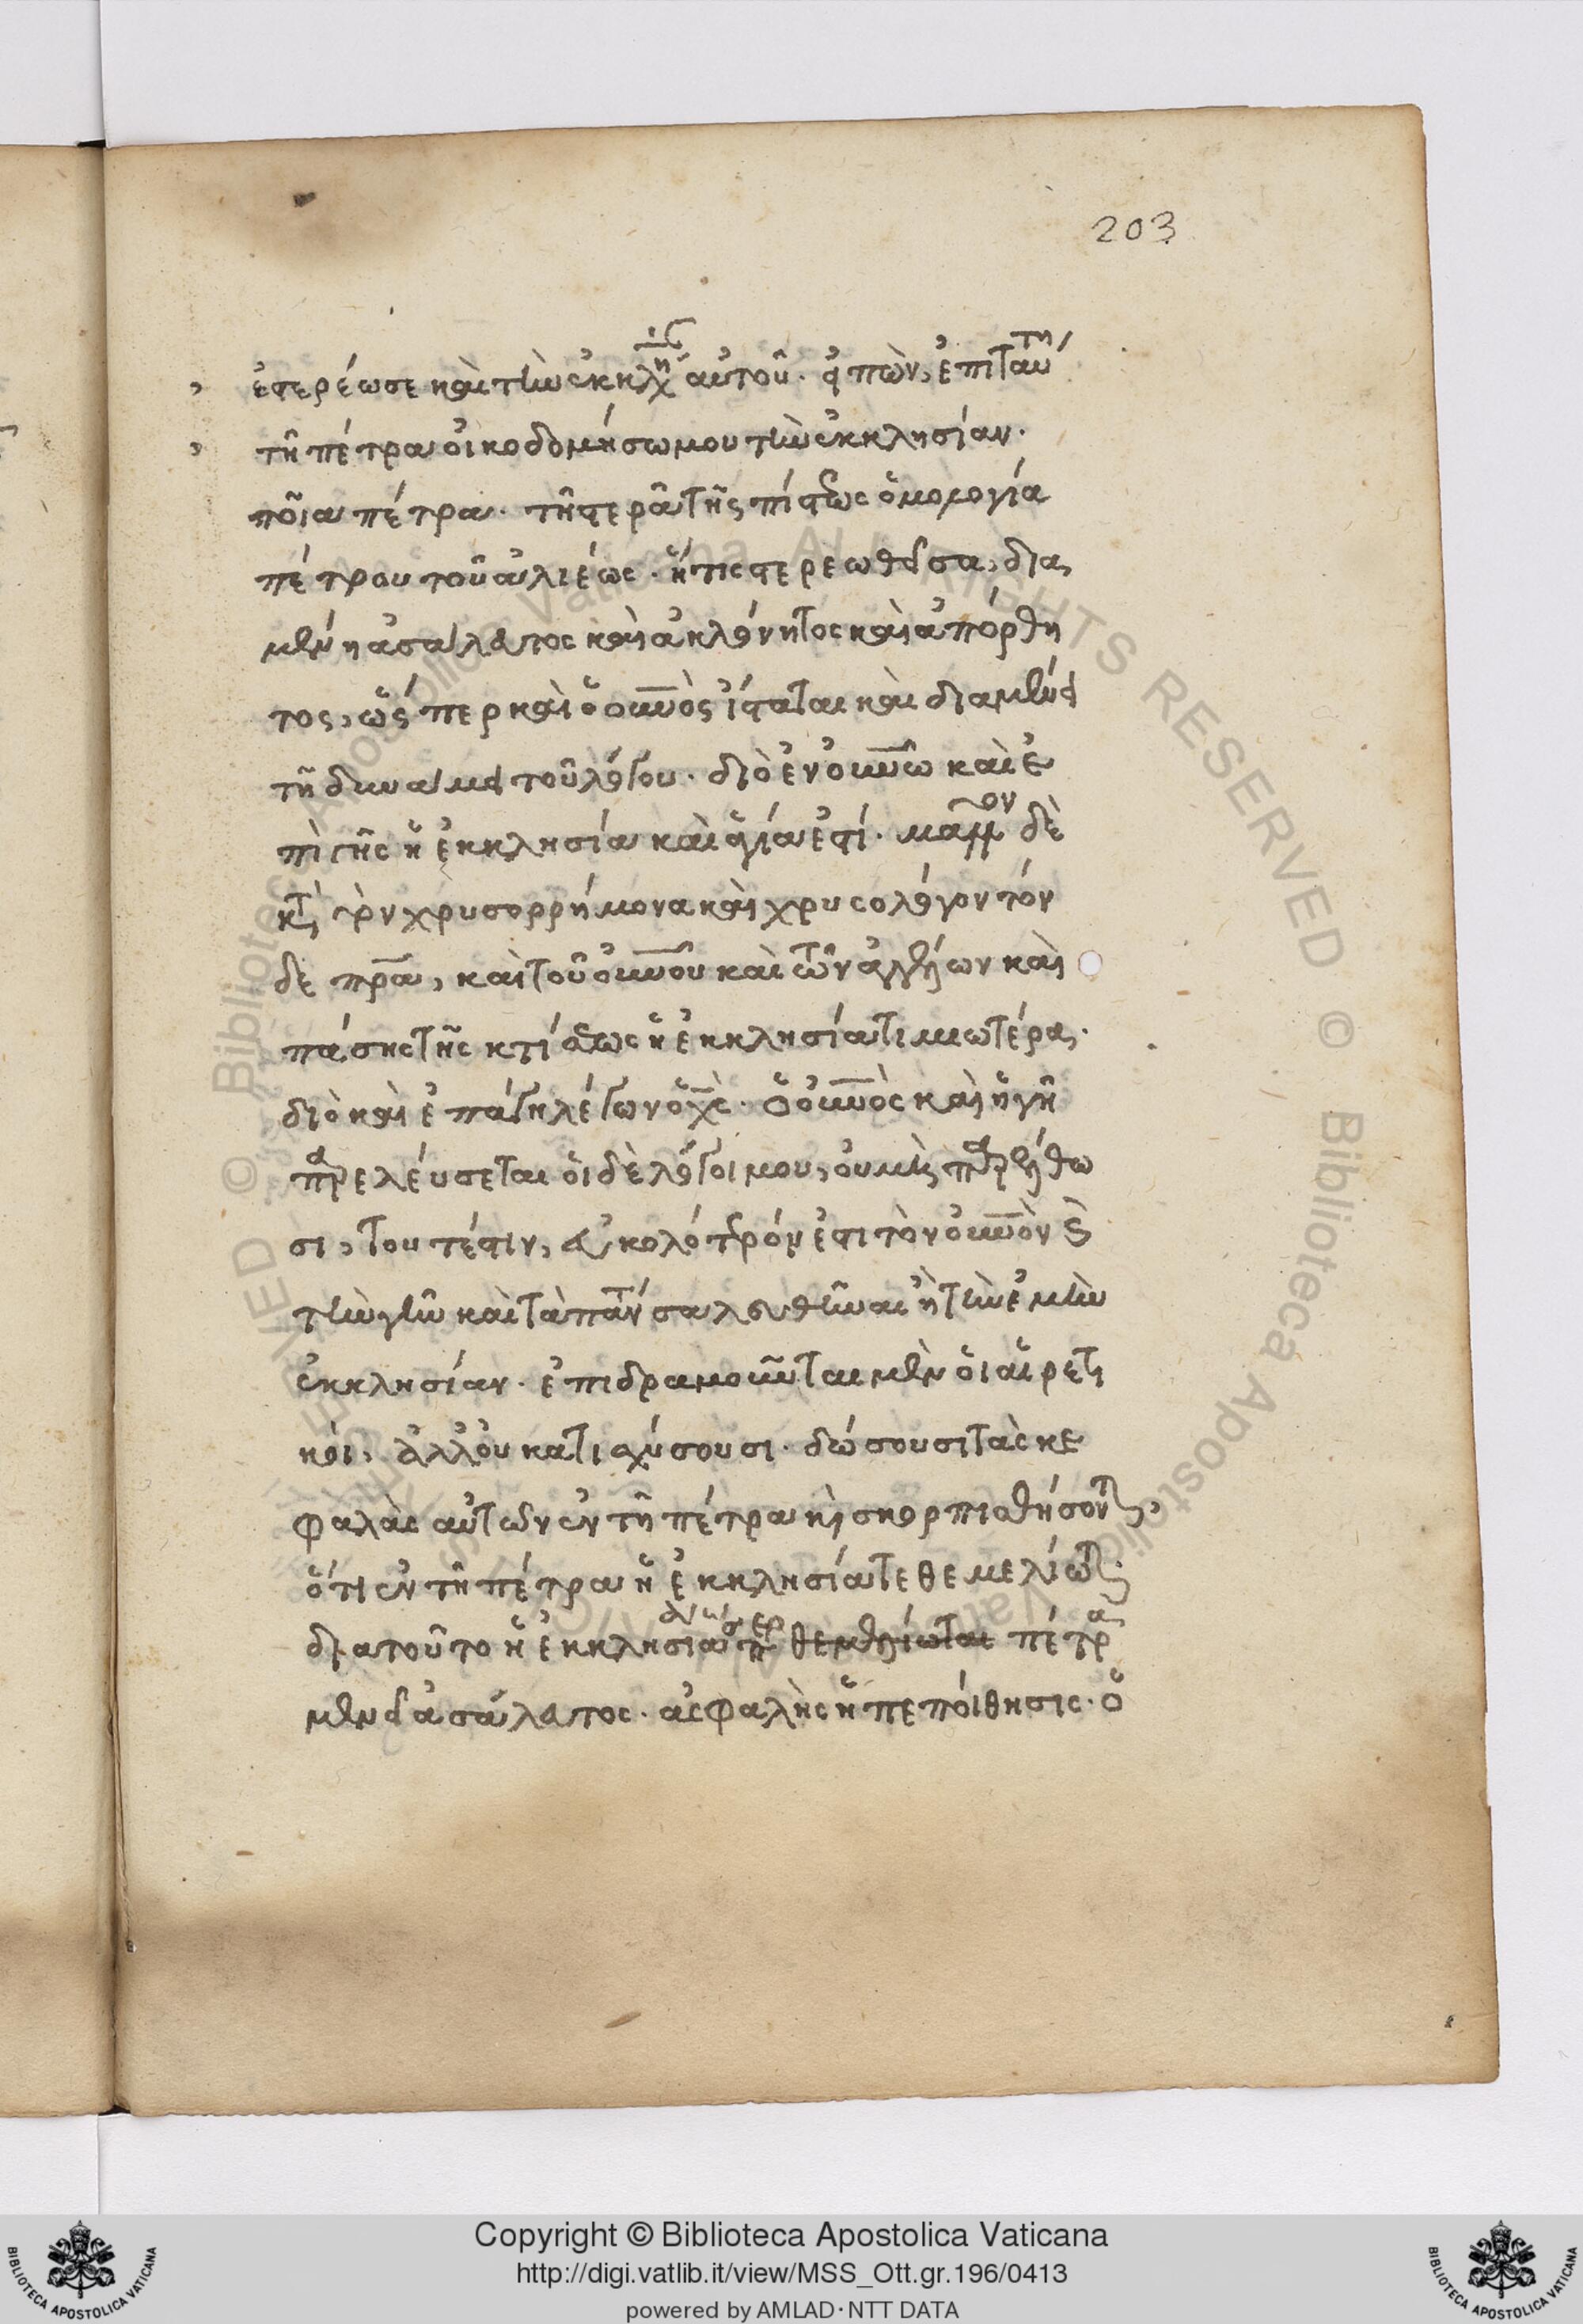 203
ἐστερέωσε καὶ τὴν ἐκκλη αὐτοῦ. εἰπὼν, ἐπὶ ταύτη
τῆ πέτρα οἰκοδομήσω μου τὴν ἐκκλησίαν.
ποῖα πέτρα. τῆ στερᾶ τῆς πίστεως ὁμολογία
πέτρου τοῦ ἁλιέως. ἥτις στερεωθεῖσα, δια
μένη ἀσάλευτος καὶ ἀκλόνητος καὶ ἀπόρθη
τος, ὥσπερ καὶ ὁ οὐνὸς ἵσταται καὶ διαμένει
τῆ δυνάμει τοῦ λόγου. διὸ ἐν οὐνῶ καὶ ἐ
πὶ γῆς ἡ ἐκκλησία καὶ ἁγία ἐστί. μᾶλλον δὲ
κτ τὸν χρυσορρήμονα καὶ χρυσολόγον τόν
δε πρα, καὶ τοῦ οὐνοῦ καὶ τῶν ἀγγέλων καὶ
πάσης τῆς κτίσεως ἡ ἐκκλησία τιμιωτέρα.
διὸ καὶ ἐπάγη λέγων ὁ χς. ὁ οὐνὸς καὶ ἡ γῆ
παρελεύσεται οἱ δὲ λόγοι μου, οὐ μὴ παρέλθω
σι, τουτέστιν, εὐκολότερόν ἐστι τὸν οὐνὸν καὶ
τὴν γῆν καὶ τὰ πάντ σαλευθῆναι ἢ τὴν ἐμὴν
ἐκκλησίαν. ἐπιδραμοῦνται μὲν οἱ αἱρετι
κοὶ, ἀλλ' οὐ κατισχύσουσι. δώσουσι τὰς κε
φαλὰς αὐτῶν ἐν τῆ πέτρα καὶ σκορπισθήσονται,
ὅτι ἐν τῆ πέτρα ἡ ἐκκλησία τεθεμελίωται.
διὰ τοῦτο ἡ ἐκκλησία πέτρα
μένει ἀσάλευτος. ἀσφαλὴς ἡ πεποίθησις. ὁ
Copyright © Biblioteca Apostolica Vaticana
http://digi.vatlib.it/view/MSS_Ott.gr.196/0413
powered by AMLAD·NTT DATA
BIBLIOTECA APOSTOLICA VATICANA
BIBLIOTECA APOSTOLICA VATICANA